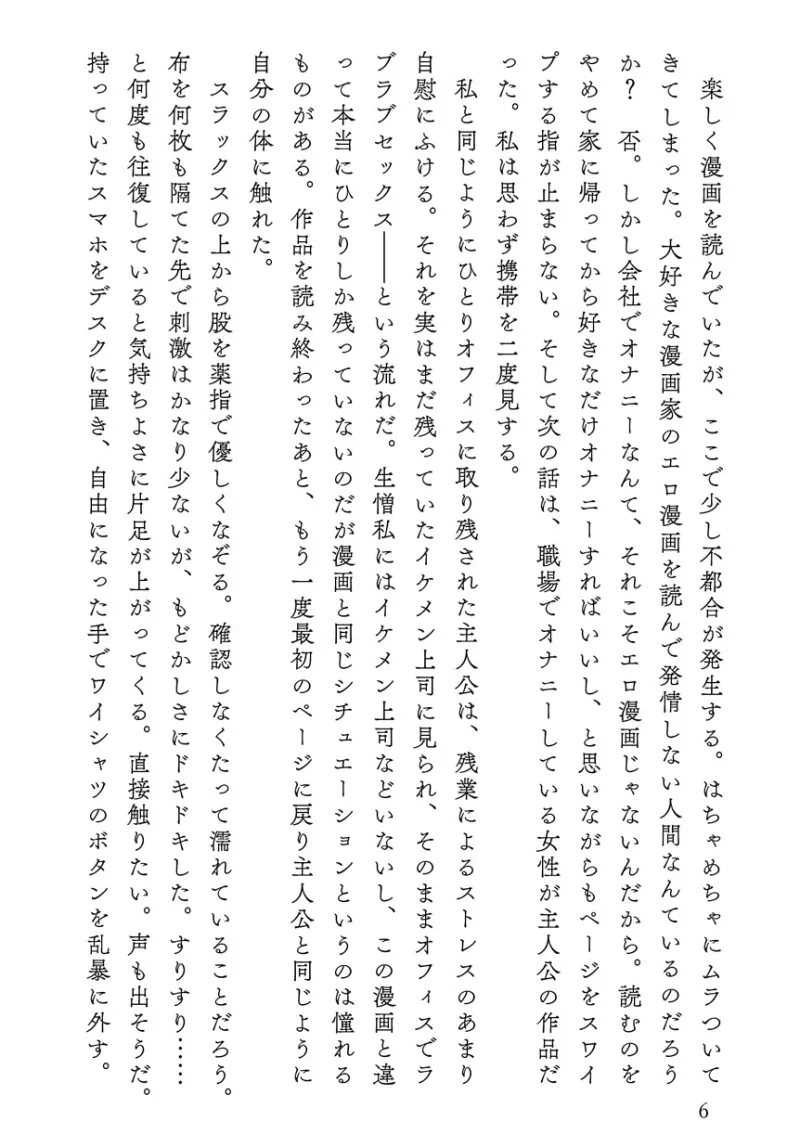 楽しく漫画を読んでいたが、ここで少し不都合が発生する。はちゃめちゃにムラついて
きてしまった。大好きな漫画家のエロ漫画を読んで発情しない人間なんているのだろう
か？　否。しかし会社でオナニーなんて、それこそエロ漫画じゃないんだから。読むのを
やめて家に帰ってから好きなだけオナニーすればいいし、と思いながらもページをスワイ
プする指が止まらない。そして次の話は、職場でオナニーしている女性が主人公の作品だ
った。私は思わず携帯を二度見する。
　私と同じようにひとりオフィスに取り残された主人公は、残業によるストレスのあまり
自慰にふける。それを実はまだ残っていたイケメン上司に見られ、そのままオフィスでラ
ブラブセックス――という流れだ。生憎私にはイケメン上司などいないし、この漫画と違
って本当にひとりしか残っていないのだが漫画と同じシチュエーションというのは憧れる
ものがある。作品を読み終わったあと、もう一度最初のページに戻り主人公と同じように
自分の体に触れた。
　スラックスの上から股を薬指で優しくなぞる。確認しなくたって濡れていることだろう。
布を何枚も隔てた先で刺激はかなり少ないが、もどかしさにドキドキした。すりすり……
と何度も往復していると気持ちよさに片足が上がってくる。直接触りたい。声も出そうだ。
持っていたスマホをデスクに置き、自由になった手でワイシャツのボタンを乱暴に外す。
6